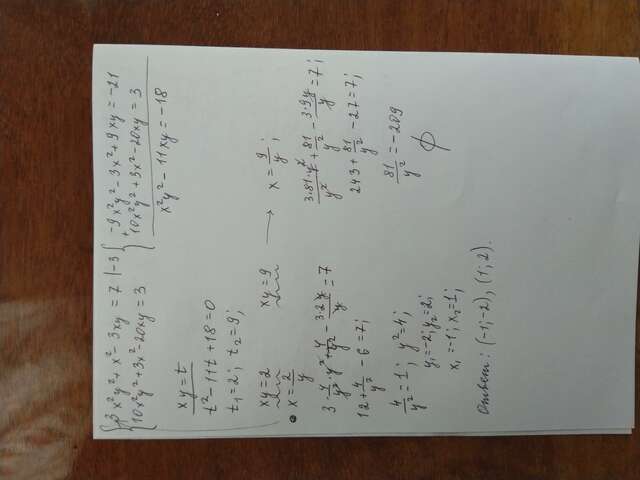 {3x²y² + x² - 3xy = 7 |-3 {-9x²y² - 3x² + 9xy = -21
{10x²y² + 3x² - 20xy = 3 + 10x²y² + 3x² - 20xy = 3
x²y² - 11xy = -18
xy = t
t² - 11t + 18 = 0
t₁ = 2; t₂ = 9;
xy = 2 xy = 9 → x = 9/y;
x = 2/y
3 · 4/y² · y² + 4/y² - 3·2y/y = 7
12 + 4/y² - 6 = 7;
4/y² = 1; y² = 4;
y₁ = -2; y₂ = 2;
x₁ = -1; x₂ = 1;
3·81·y²/y² + 81/y² - 3·9y/y = 7;
243 + 81/y² - 27 = 7;
81/y² = -209
∅
Ответ: (-1; -2), (1; 2).